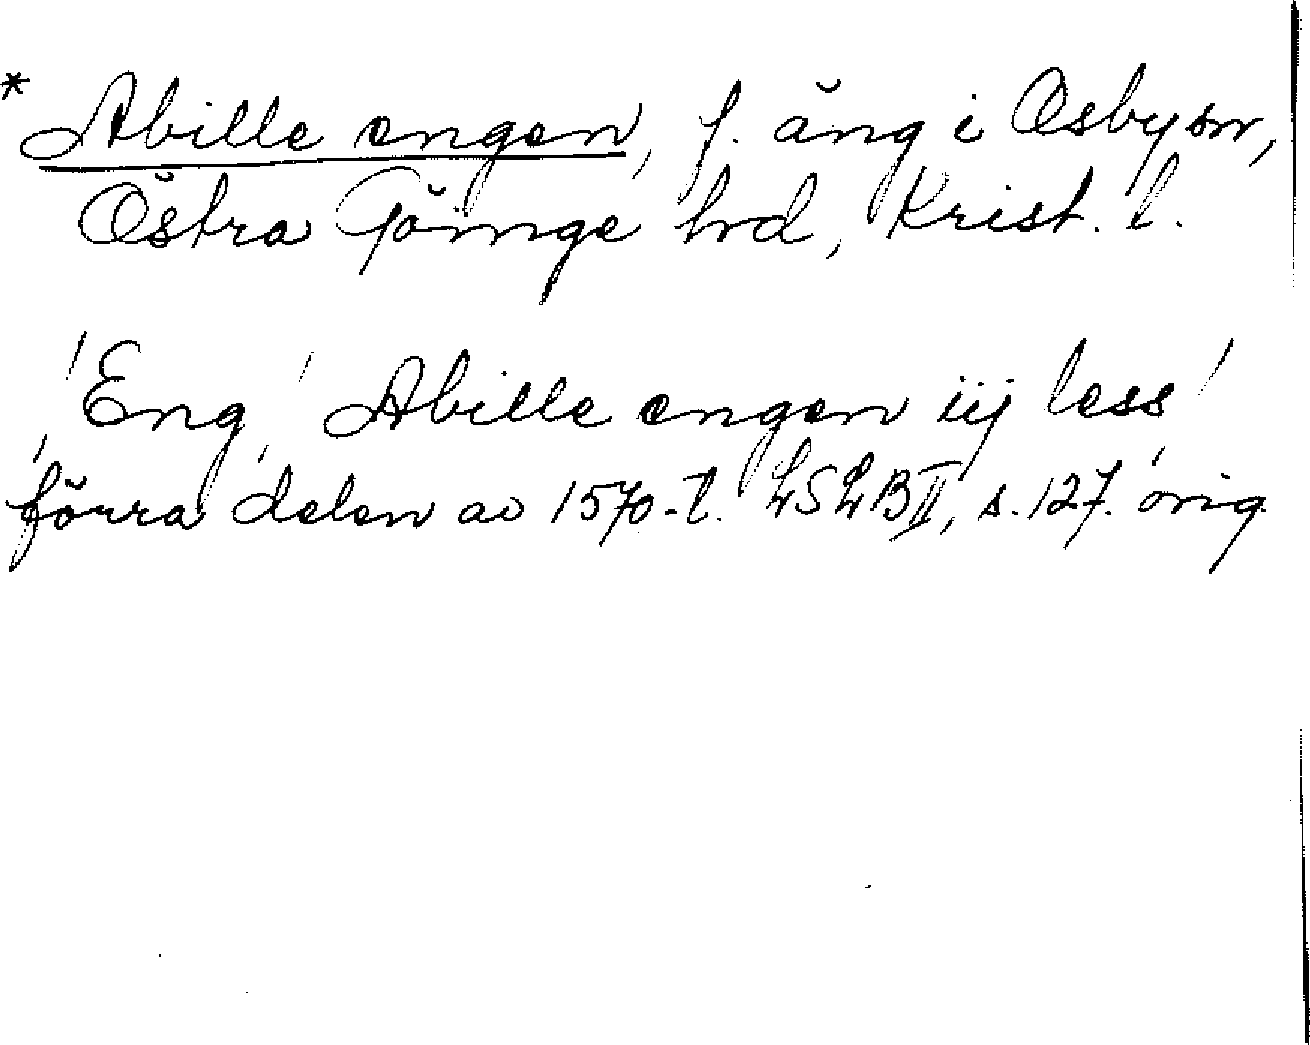 * Abille engen, f. äng i Osby sn,
Östra Göinge hd, Krist. l.
'Eng' 'Abille engen iij less'
förra delen av 1570-t. LSLB II, s. 127. orig.